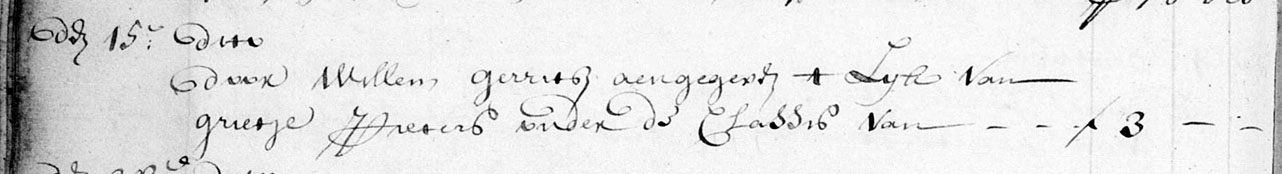 Ddẽ 15ẽ: Dito
Door Willem Gerritsz aengegevẽ t Lijk van
grietje Pieters onder de Classis van - - f 3 - -